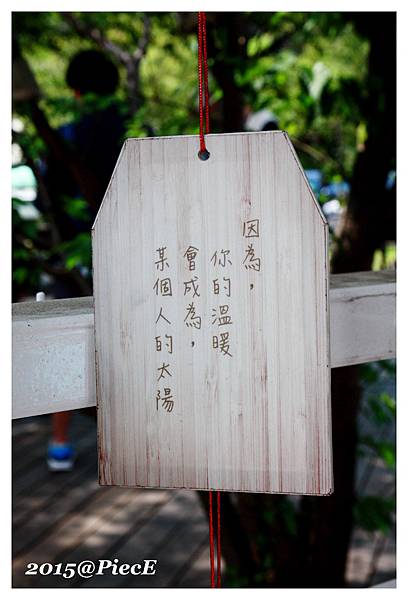 因為，
你的溫暖
會成為，
某個人的太陽
2015@PiecE